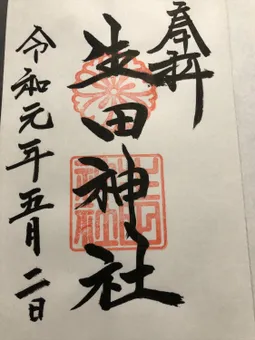 奉拝
生田神社
令和元年五月二日